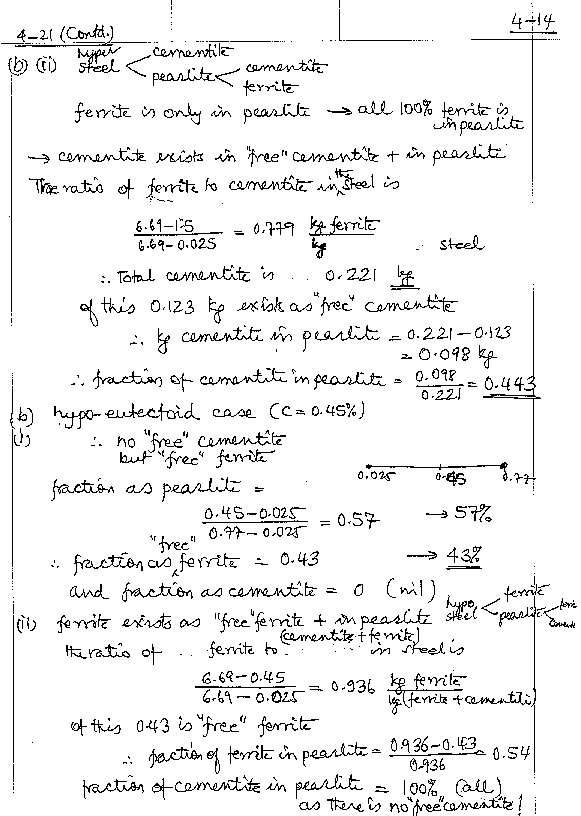 4-21 (Contd.) 4-14
(b) (ii) hyper steel < cementite
pearlite < cementite
ferrite
ferrite is only in pearlite → all 100% ferrite is in pearlite
→ cementite exists in "free" cementite + in pearlite
The ratio of ferrite to cementite in the steel is
6.69-1.5 / 6.69-0.025 = 0.779 kg ferrite / kg steel
∴ Total cementite is .. 0.221 kg
of this 0.123 kg exist as "free" cementite
∴ kg cementite in pearlite = 0.221-0.123
= 0.098 kg
∴ fraction of cementite in pearlite = 0.098 / 0.221 = 0.443
(b) hypo-eutectoid case (C = 0.45%)
(i) ∴ no "free" cementite
but "free" ferrite
0.025 0.45 0.77
fraction as pearlite =
0.45-0.025 / 0.77-0.025 = 0.57 → 57%
∴ fraction as "free" ferrite = 0.43 → 43%
and fraction as cementite = 0 (nil)
(ii) ferrite exists as "free" ferrite + in pearlite hypo steel < ferrite
pearlite < ferrite
cemente
(cementite + ferrite)
the ratio of .. ferrite to ..... in steel is
6.69-0.45 / 6.69-0.025 = 0.936 kg ferrite / kg (ferrite + cementite)
of this 0.43 is "free" ferrite
∴ fraction of ferrite in pearlite = 0.936-0.43 / 0.936 = 0.54
fraction of cementite in pearlite = 100% (all)
as there is no "free" cementite!